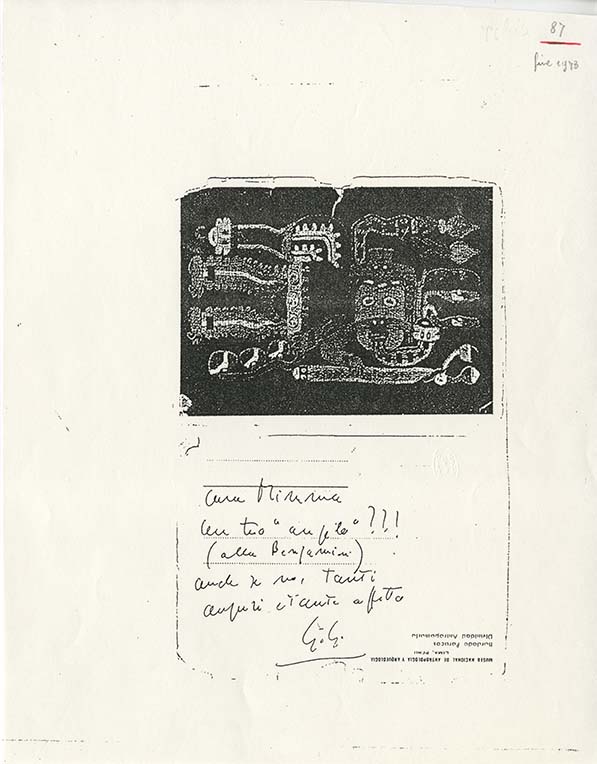 87
fine 1973
Cara Mimma
un tuo "angelo"??!
(alla Benjamin)
anche x noi, Tanti
auguri e tanto affetto
G.G.
MUSEO NACIONAL DE ANTROPOLOGIA Y ARQUEOLOGIA
LIMA, PERU
Bordado Paracas
Divinidad Antropomorfa